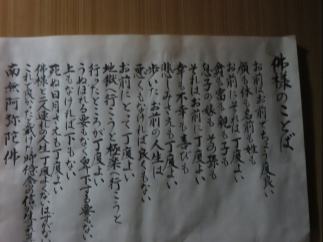 佛様のことば
お前はお前でちょうど良い
顔も体も名前も姓も
お前にそれは丁度よい
貧も富も親も子も
息子の嫁もその孫も
それはお前に丁度よい
幸も不幸も喜びも
悲しみさえも丁度よい
歩いたお前の人生は
悪くもなければ良くもない
お前にとって丁度よい
地獄へ行こうと極楽へ行こうと
行ったところが丁度よい
うぬぼれる要もなく卑下する要もない
上もなければ下もない
死ぬ月日さえも丁度よい
佛様と二連れの人生丁度よくないはずがない
丁度よいのだと戴けた時憶念の信が生まれる
南無阿弥陀佛